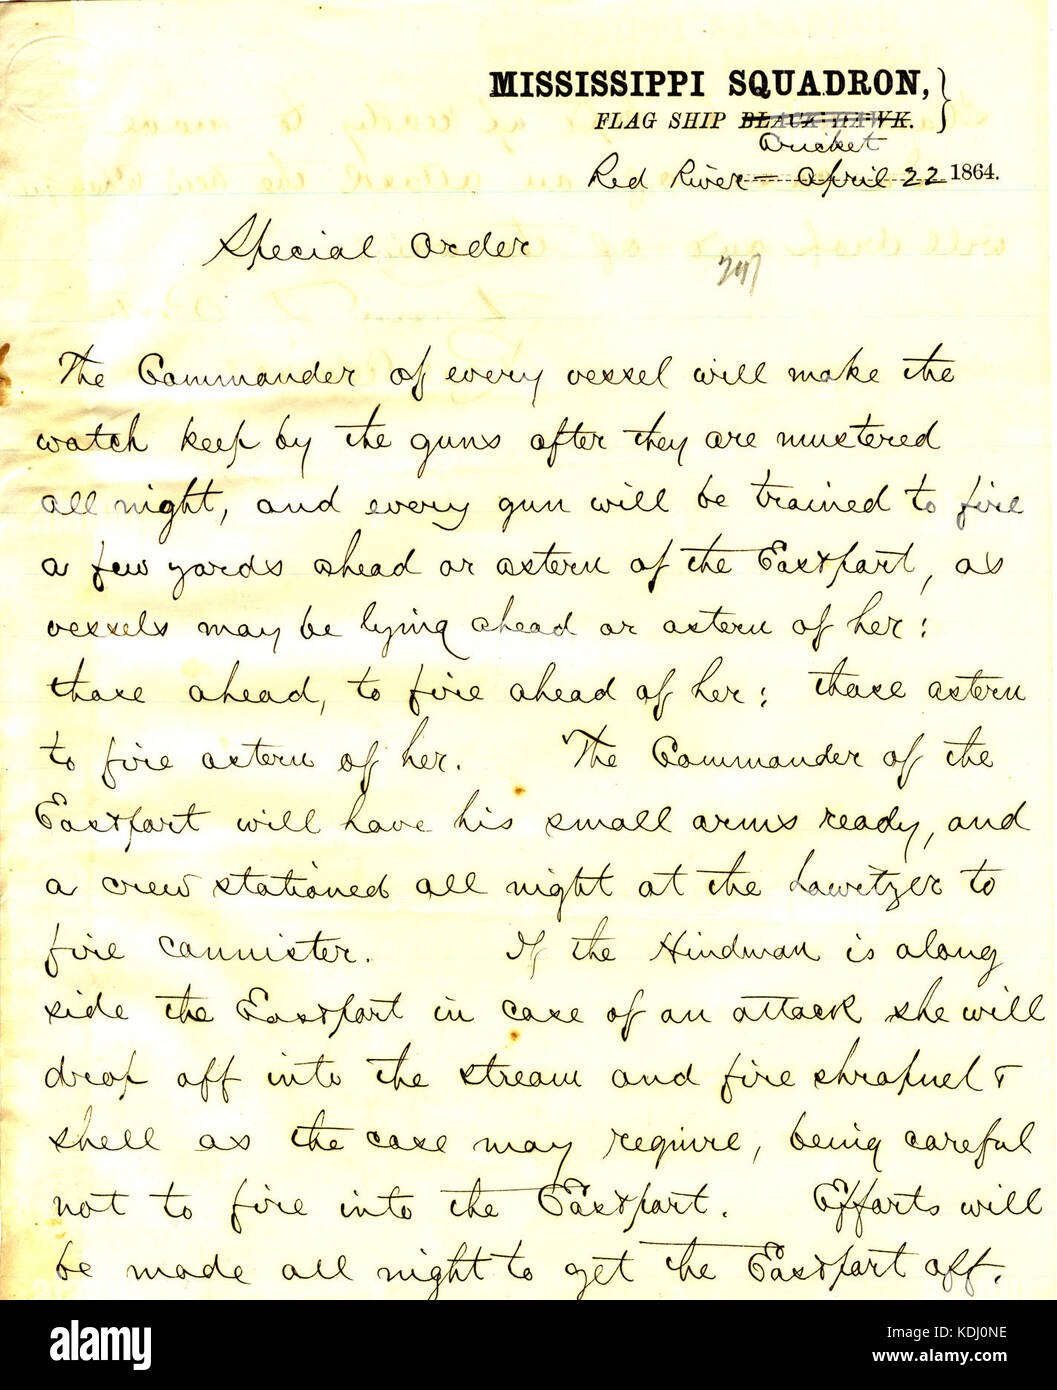 MISSISSIPPI SQUADRON,
FLAG SHIP BLACK HAWK.
Cricket
Red River — April 22 1864.
Special Order
The Commander of every vessel will make the
watch keep by the guns after they are mustered
all night, and every gun will be trained to fire
a few yards ahead or astern of the Eastport, as
vessels may be lying ahead or astern of her:
those ahead, to fire ahead of her: those astern
to fire astern of her. The Commander of the
Eastport will have his small arms ready, and
a crew stationed all night at the howitzer to
fire cannister. If the Hindman is along
side the Eastport in case of an attack she will
drop off into the stream and fire shrapnel &
shell as the case may require, being careful
not to fire into the Eastport. Efforts will
be made all night to get the Eastport off.
alamy
Image ID: KDJ0NE
www.alamy.com